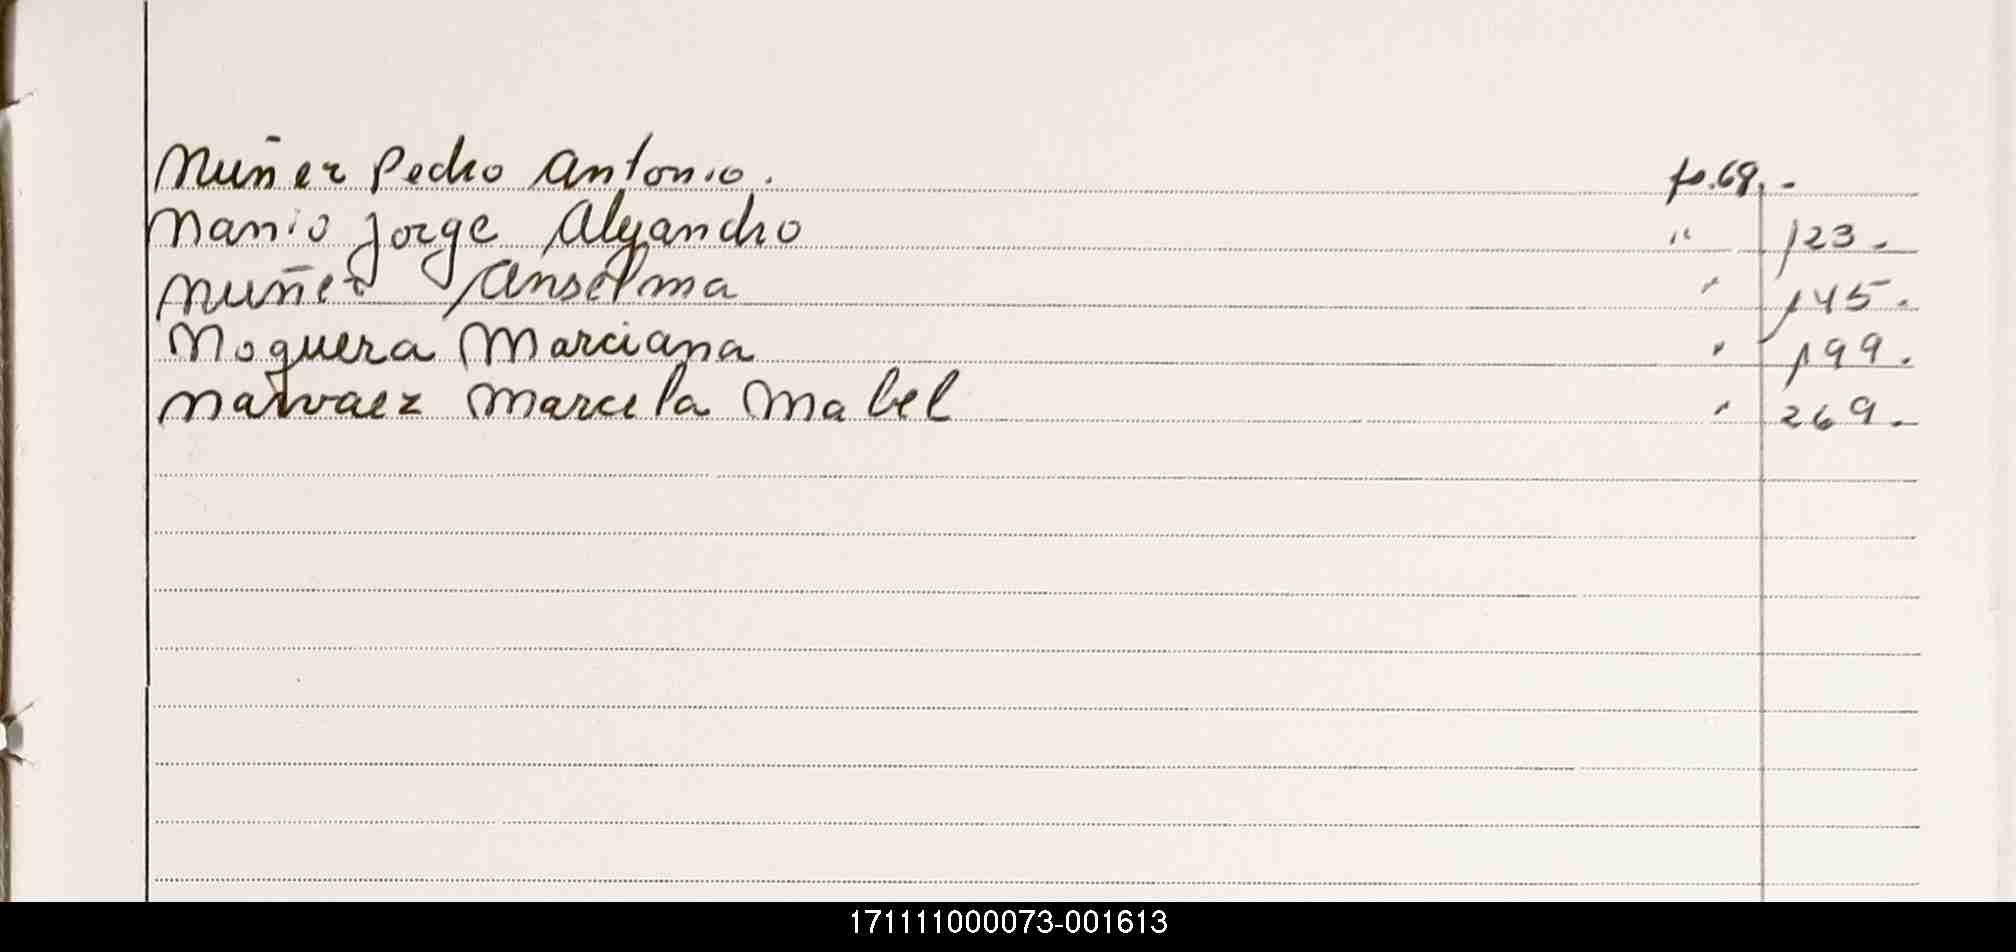 Nuñez Pedro Antonio. fo. 69. -
Nanio Jorge Alejandro " 123.
Nuñez Anselma " 145.
Noguera Marciana " 199.
Narvaez Marcela Mabel " 269.
171111000073-001613